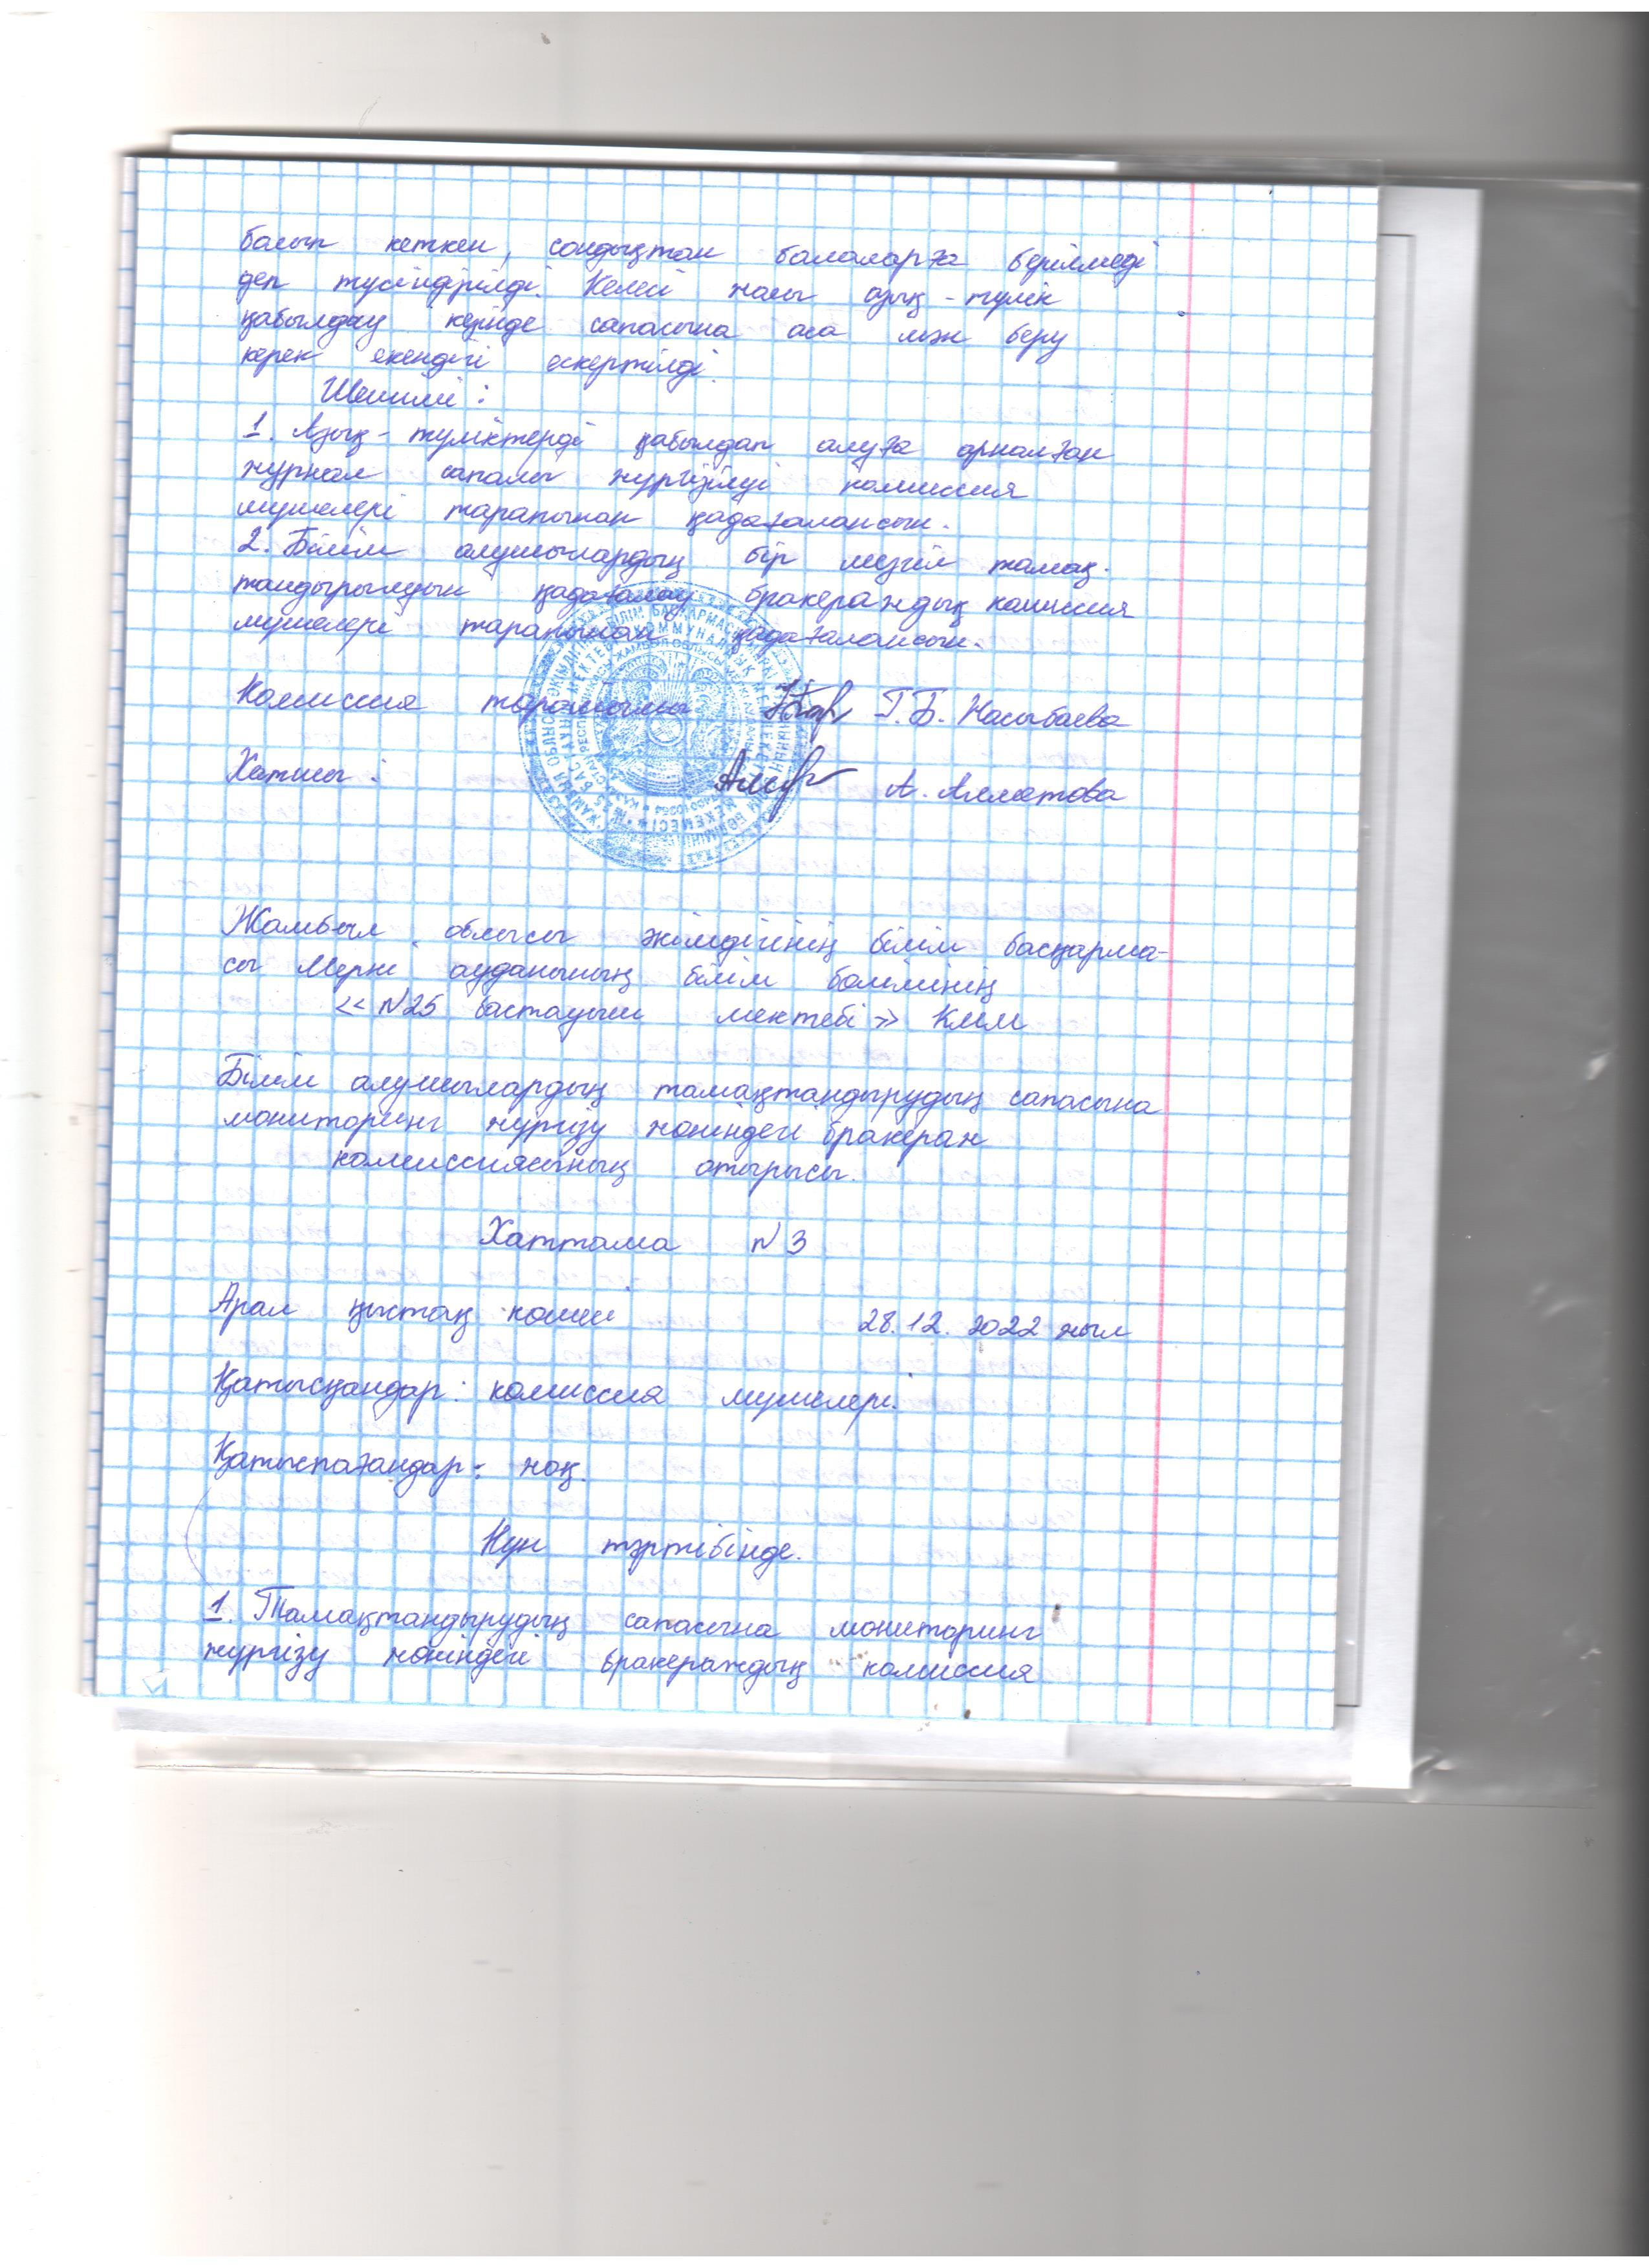 басып кеткен, сондықтан балаларға берілмеді
деп түсіндірілді. Келесі жолы азық-түлік
қабылдау кезінде сапасына аса мән беру
керек екендігі ескертілді.
Шешімі:
1. Азық-түліктерді қабылдап алуға арналған
журнал сапалы жүргізілуі комиссия
мүшелері тарапынан қадағалансын.
2. Білім алушылардың бір мезгіл тамақ-
тандырылуын қадағалау бракераждық комиссия
мүшелері тарапынан қадағалансын.
Комиссия төрайымы Г.Б. Насыбаева
Хатшы: А. Алматова
Жамбыл облысы әкімдігінің білім басқарма-
сы Меркі ауданының білім бөлімінің
<<№25 бастауыш мектебі>> КММ
Білім алушылардың тамақтандырудың сапасына
мониторинг жүргізу жөніндегі бракераж
комиссиясының отырысы.
Хаттама №3
Арал қыстақ көшесі 28.12.2022 жыл
Қатысқандар: комиссия мүшелері.
Қатыспағандар: жоқ.
Күн тәртібінде.
1. Тамақтандырудың сапасына мониторинг
жүргізу жөніндегі бракераждық комиссия